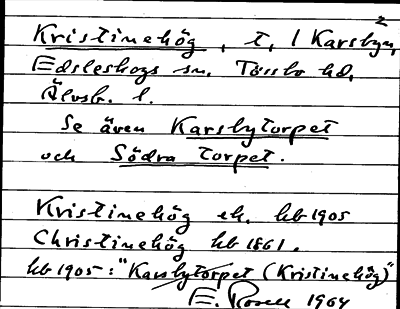 Kristinehög, t, / Karsbyn,
Edsleskogs sn. Tössbo hd,
Älvsb. l.
Se även Karsbytorpet
och Södra torpet.
Kristinehög ek. hb 1905
Christinehög hb 1861.
hb 1905: "Karsbytorpet (Kristinehög)"
E. 1964